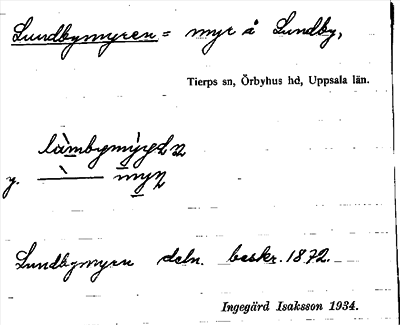 Lundbymyren = myr å Lundby,
Tierps sn, Örbyhus hd, Uppsala län.
y.
Lundbymyren deln. beskr. 1872.
Ingegärd Isaksson 1934.